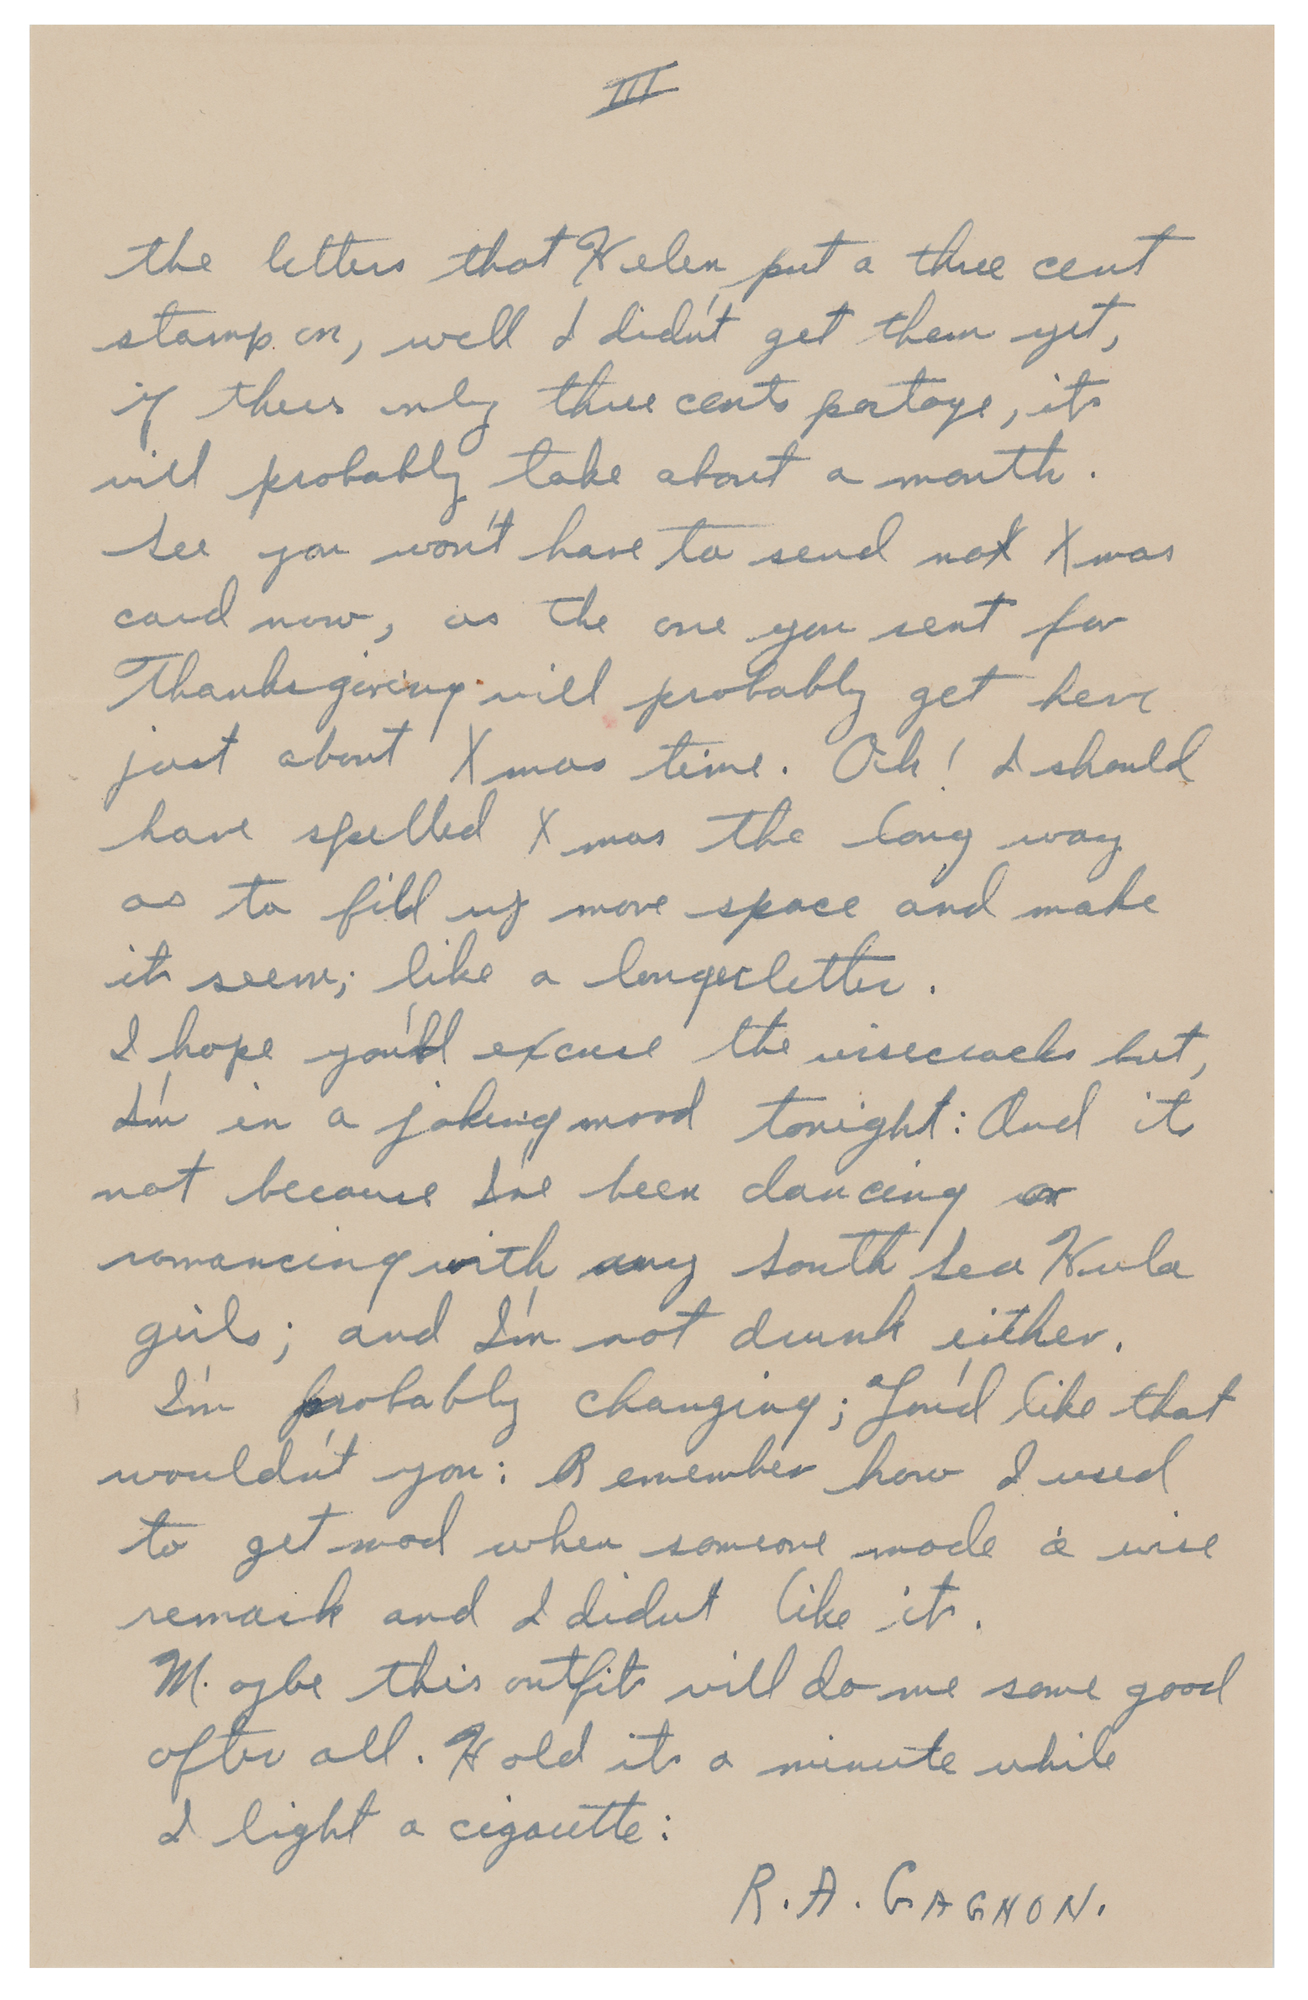 III
the letters that Helen put a three cent
stamp on, well I didn't get them yet,
if theirs only three cents postage, it
will probably take about a month.
See you won't have to send no Xmas
card now, as the one you sent for
Thanksgiving will probably get here
just about Xmas time. Oh! I should
have spelled Xmas the long way
as to fill up more space and make
it seem; like a longer letter.
I hope you'll excuse the wisecracks but,
I'm in a joking mood tonight: And it
not because I've been dancing or
romancing with any South Sea Hula
girls; and I'm not drunk either.
I'm probably changing; You'd like that
wouldn't you: Remember how I used
to get mad when someone made a wise
remark and I didn't like it.
Maybe this outfit will do me some good
after all. Hold it a minute while
I light a cigarette:
R. A. GAGNON.